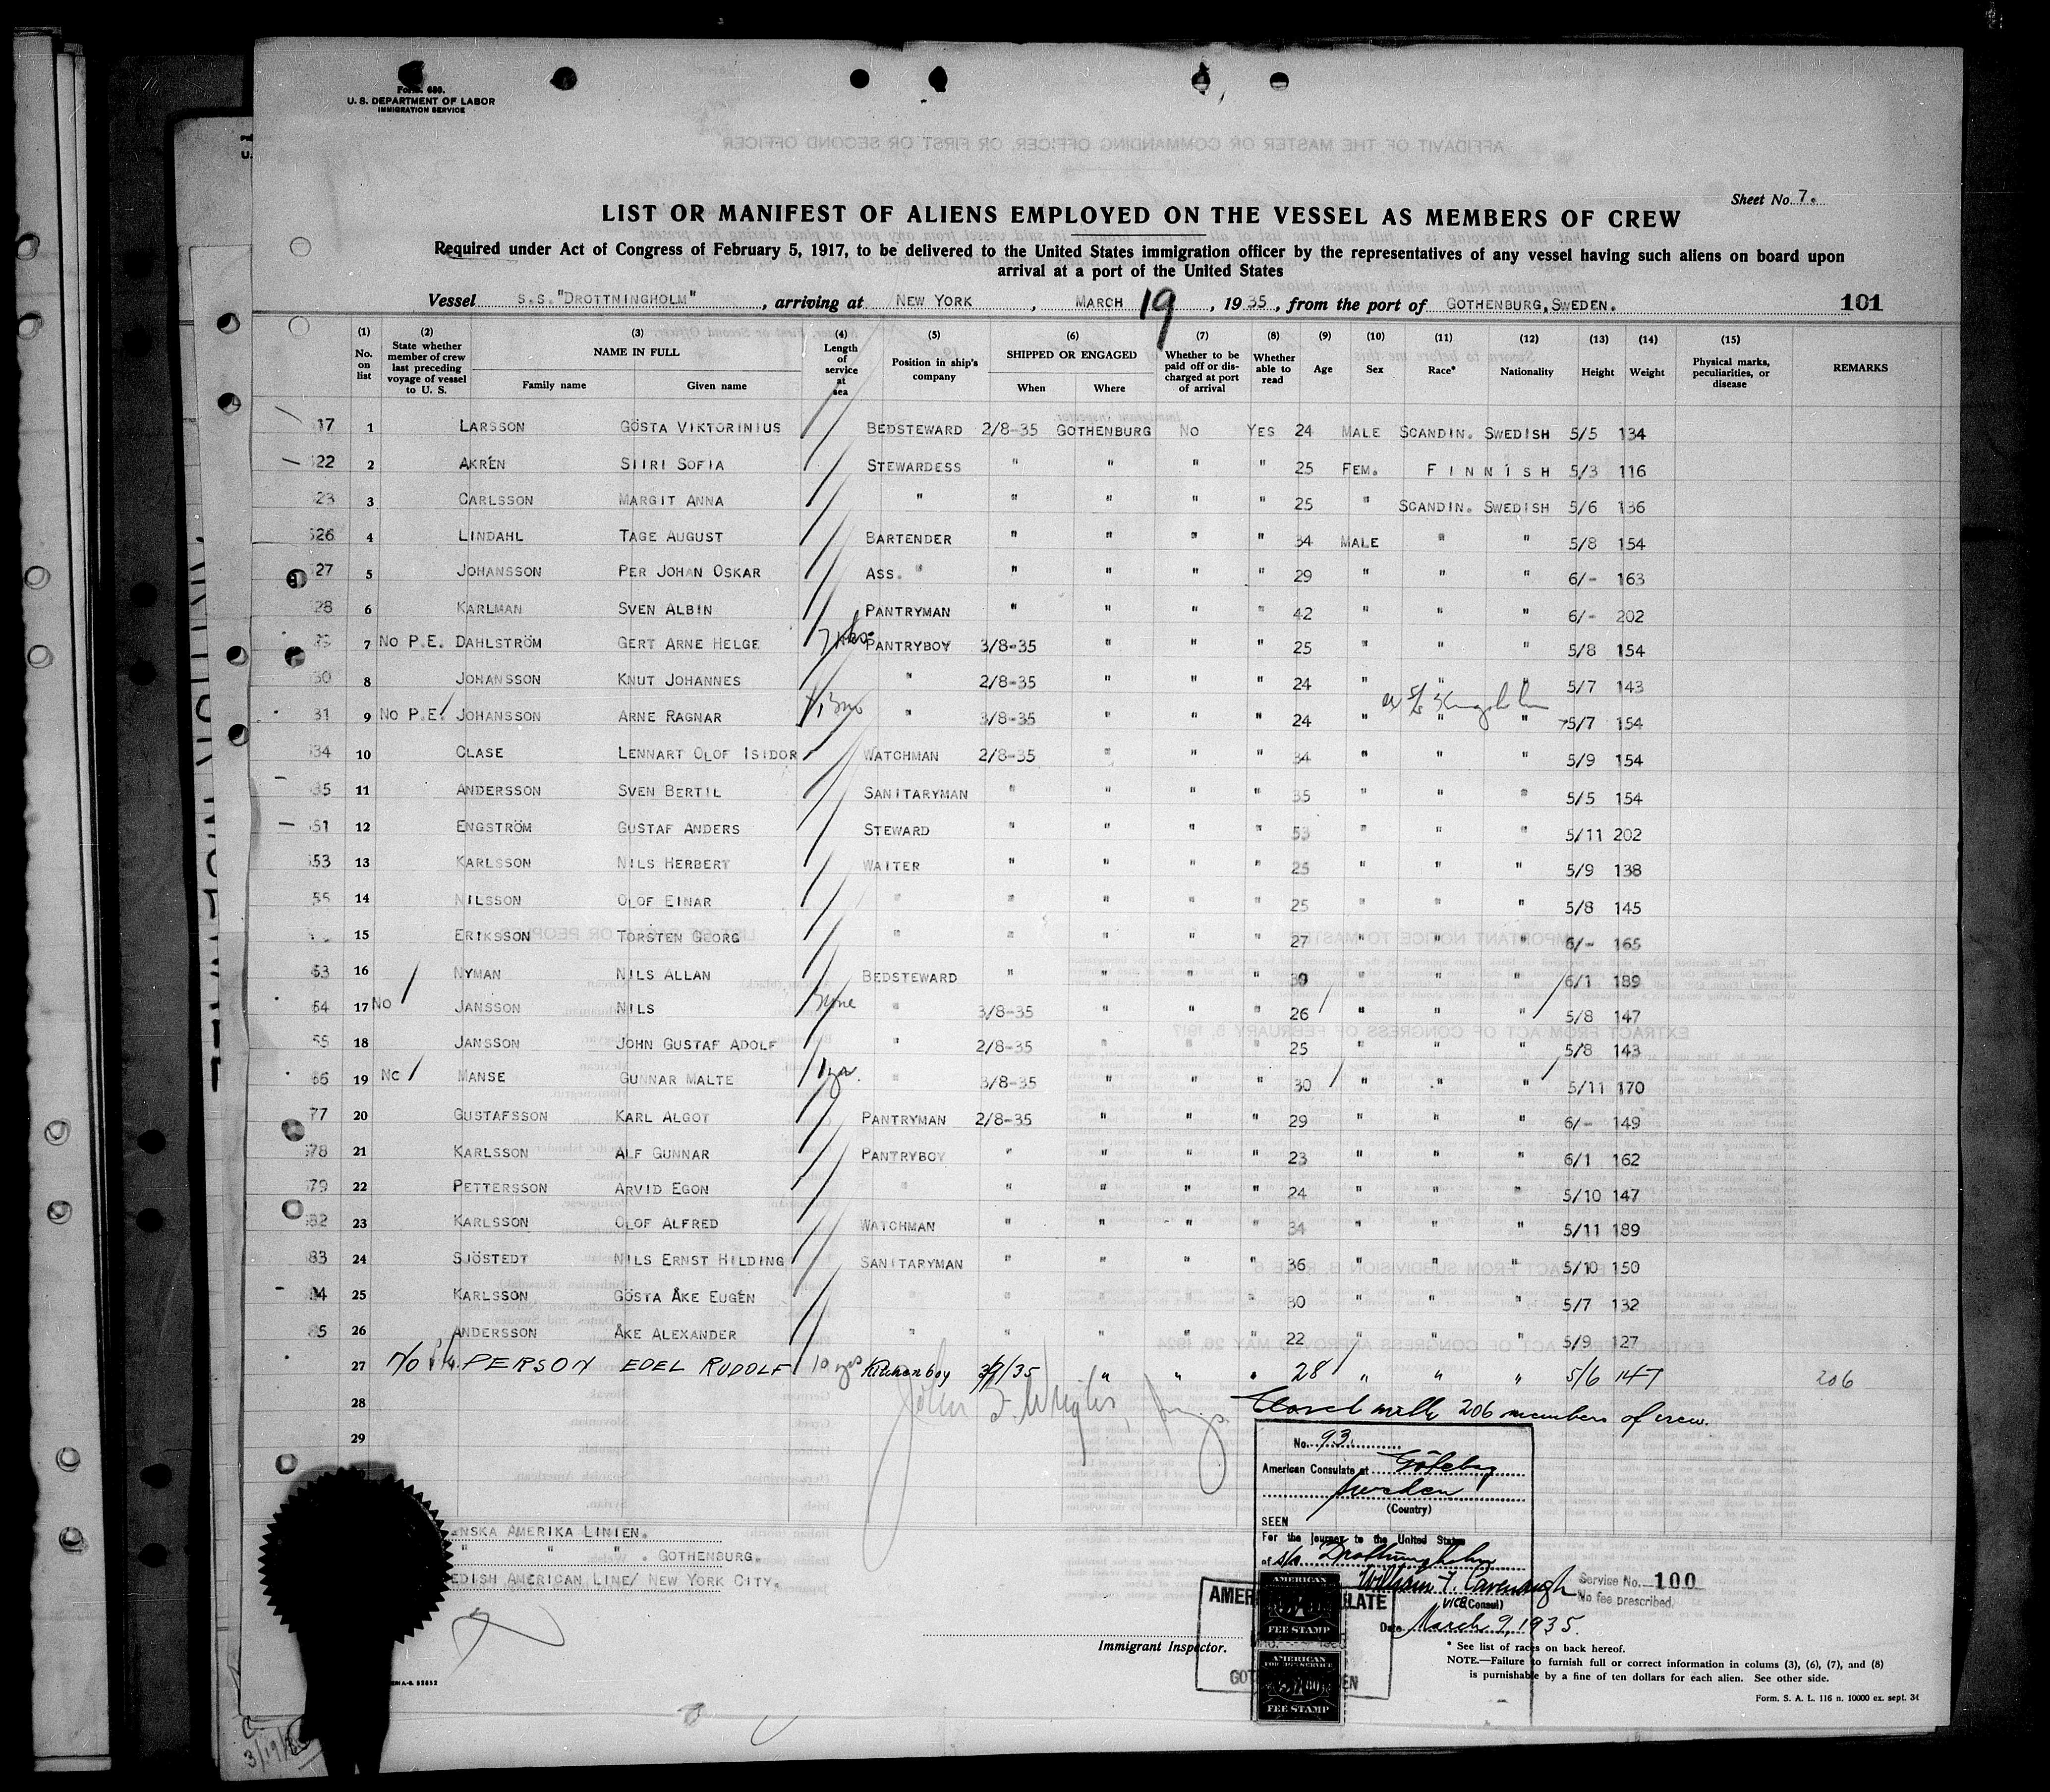 Form 680.
U. S. DEPARTMENT OF LABOR
IMMIGRATION SERVICE
Sheet No. 7.
LIST OR MANIFEST OF ALIENS EMPLOYED ON THE VESSEL AS MEMBERS OF CREW
Required under Act of Congress of February 5, 1917, to be delivered to the United States immigration officer by the representatives of any vessel having such aliens on board upon
arrival at a port of the United States
Vessel S.S. "DROTTNINGHOLM", arriving at NEW YORK, MARCH 19, 1935, from the port of GOTHENBURG, SWEDEN. 101
(1) No. on list
(2) State whether member of crew last preceding voyage of vessel to U. S.
(3) NAME IN FULL Family name Given name
(4) Length of service at sea
(5) Position in ship's company
(6) SHIPPED OR ENGAGED When Where
(7) Whether to be paid off or discharged at port of arrival
(8) Whether able to read
(9) Age
(10) Sex
(11) Race*
(12) Nationality
(13) Height
(14) Weight
(15) Physical marks, peculiarities, or disease
REMARKS
17 1 LARSSON GÖSTA VIKTORINIUS BEDSTEWARD 2/8-35 GOTHENBURG NO YES 24 MALE SCANDIN. SWEDISH 5/5 134
22 2 AKRÉN SIIRI SOFIA STEWARDESS " " " " 25 FEM. FINNISH 5/3 116
23 3 CARLSSON MARGIT ANNA " " " " " 25 " SCANDIN. SWEDISH 5/6 136
26 4 LINDAHL TAGE AUGUST BARTENDER " " " " 34 MALE " " 5/8 154
27 5 JOHANSSON PER JOHAN OSKAR ASS. " " " " " 29 " " " 6/- 163
28 6 KARLMAN SVEN ALBIN PANTRYMAN " " " " 42 " " " 6/- 202
7 NO P.E. DAHLSTRÖM GERT ARNE HELGE PANTRYBOY 3/8-35 " " " 25 " " " 5/8 154
30 8 JOHANSSON KNUT JOHANNES " 2/8-35 " " " 24 " " " 5/7 143
31 9 NO P.E. JOHANSSON ARNE RAGNAR " 3/8-35 " " " 24 " " " 5/7 154
34 10 CLASE LENNART OLOF ISIDOR WATCHMAN 2/8-35 " " " 34 " " " 5/9 154
35 11 ANDERSSON SVEN BERTIL SANITARYMAN " " " " 35 " " " 5/5 154
51 12 ENGSTRÖM GUSTAF ANDERS STEWARD " " " " 53 " " " 5/11 202
53 13 KARLSSON NILS HERBERT WAITER " " " " 25 " " " 5/9 138
55 14 NILSSON OLOF EINAR " " " " " 25 " " " 5/8 145
15 ERIKSSON TORSTEN GEORG " " " " " 27 " " " 6/- 165
63 16 NYMAN NILS ALLAN BEDSTEWARD " " " " 30 " " " 6/1 189
64 17 NO JANSSON NILS " 3/8-35 " " " 26 " " " 5/8 147
18 JANSSON JOHN GUSTAF ADOLF " 2/8-35 " " " 25 " " " 5/8 143
66 19 NO MANSE GUNNAR MALTE 1 yr. " 3/8-35 " " " 30 " " " 5/11 170
77 20 GUSTAFSSON KARL ALGOT PANTRYMAN 2/8-35 " " " 29 " " " 6/- 149
78 21 KARLSSON ALF GUNNAR PANTRYBOY " " " " 23 " " " 6/1 162
79 22 PETTERSSON ARVID EGON " " " " " 24 " " " 5/10 147
82 23 KARLSSON OLOF ALFRED WATCHMAN " " " " 34 " " " 5/11 189
83 24 SJÖSTEDT NILS ERNST HILDING SANITARYMAN " " " " 36 " " " 5/10 150
84 25 KARLSSON GÖSTA ÅKE EUGÉN " " " " " 30 " " " 5/7 132
85 26 ANDERSSON ÅKE ALEXANDER " " " " " 22 " " " 5/9 127
27 No PERSON EDEL RUDOLF 10 yrs Kitchenboy /35 " " " 28 " " " 5/6 147 206
28 Closed with 206 members of crew.
29
No. 93.
American Consulate at Göteborg
Sweden
(Country)
SEEN
For the journey to the United States
of s/s Drottningholm
William T. Cavenaugh
Vice Consul)
Date March 9, 1935.
Service No. 100
No fee prescribed.
ENSKA AMERIKA LINIEN.
" " " . GOTHENBURG.
EDISH AMERICAN LINE/ NEW YORK CITY.
AMERICAN
FEE STAMP
AMERICAN
FOREIGN SERVICE
FEE STAMP
Immigrant Inspector.
* See list of races on back hereof.
NOTE.—Failure to furnish full or correct information in colums (3), (6), (7), and (8)
is punishable by a fine of ten dollars for each alien. See other side.
Form. S. A. L. 116 n. 10000 ex. sept. 34